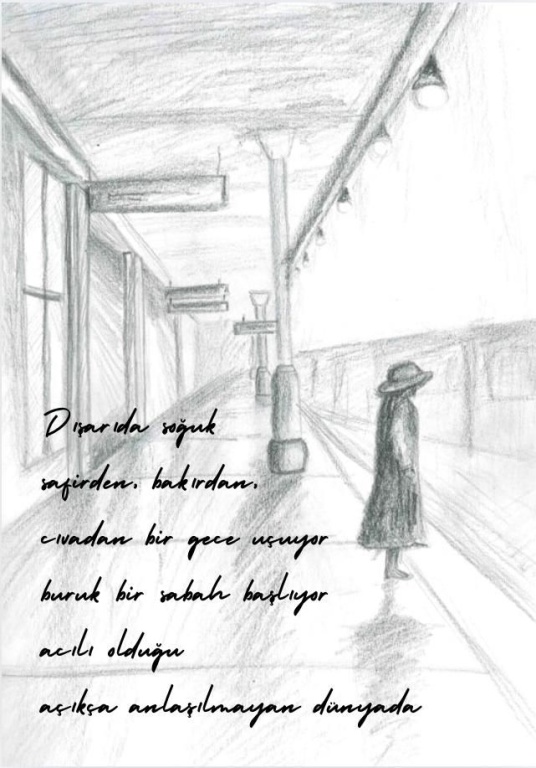 Dışarıda soğuk
safirden, bakırdan,
cıvadan bir gece uçuyor
buruk bir sabah başlıyor
acılı olduğu
açıkça anlaşılmayan dünyada